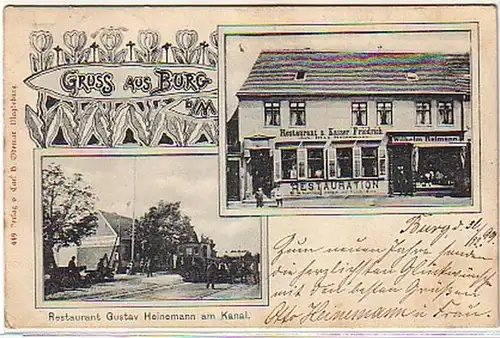 GRUSS AUS BURG
b/M
Restaurant z. Kaiser Friedrich
Wilhelm Reimann
RESTAURATION
Restaurant Gustav Heinemann am Kanal.
449 Verlag v. Carl H. Odemar, Magdeburg
Burg d. 31/12 99
Zum neuen Jahre senden
die herzlichsten Glückwünsche
mit den besten Grüßen
Otto Heinemann u. Frau.